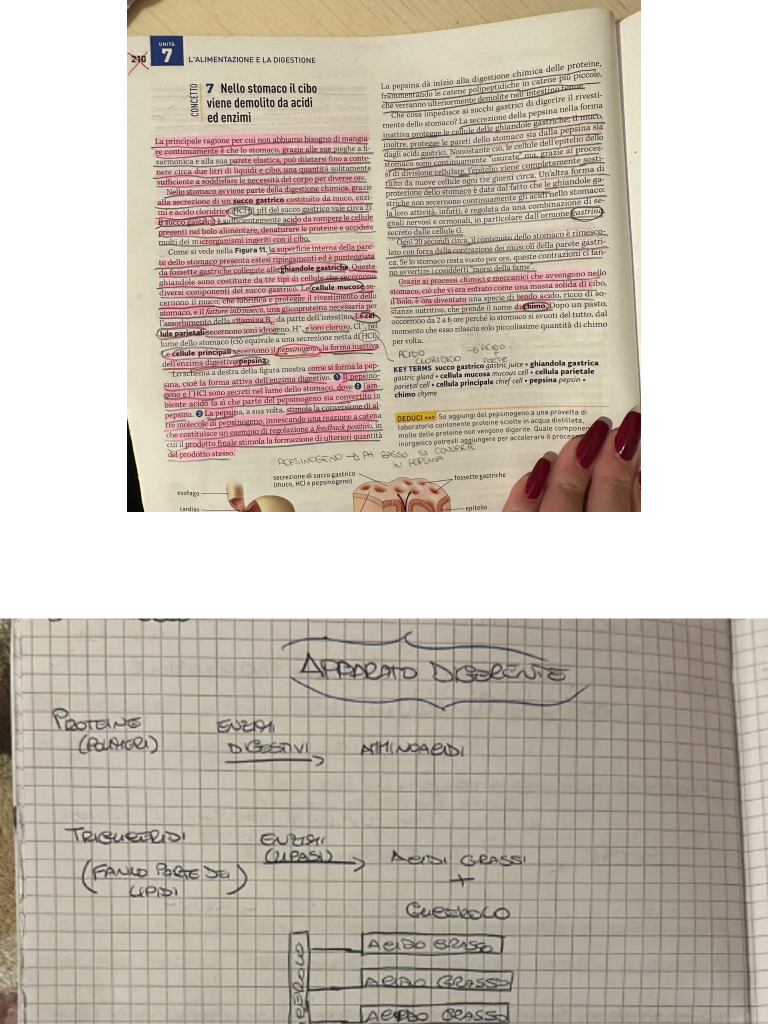 210
UNITÀ
7
L'ALIMENTAZIONE E LA DIGESTIONE
CONCETTO
7 Nello stomaco il cibo
viene demolito da acidi
ed enzimi
La principale ragione per cui non abbiamo bisogno di mangia-
re continuamente è che lo stomaco, grazie alle sue pieghe a fi-
sarmonica e alla sua parete elastica, può dilatarsi fino a conte-
nere circa due litri di liquidi e cibo, una quantità solitamente
sufficiente a soddisfare le necessità del corpo per diverse ore.
Nello stomaco avviene parte della digestione chimica, grazie
alla secrezione di un succo gastrico costituito da muco, enzi-
mi e acido cloridrico (HCl). Il pH del succo gastrico vale circa 2:
il succo gastrico è sufficientemente acido da rompere le cellule
presenti nel bolo alimentare, denaturare le proteine e uccidere
molti dei microrganismi ingeriti con il cibo.
Come si vede nella Figura 11, la superficie interna della pare-
te dello stomaco presenta estesi ripiegamenti ed è punteggiata
da fossette gastriche collegate alle ghiandole gastriche. Queste
ghiandole sono costituite da tre tipi di cellule che secernono
diversi componenti del succo gastrico. Le cellule mucose se-
cernono il muco, che lubrifica e protegge il rivestimento dello
stomaco, e il fattore intrinseco, una glicoproteina necessaria per
l'assorbimento della vitamina B₁₂ da parte dell'intestino. Le cel-
lule parietali secernono ioni idrogeno, H⁺, e ioni cloruro, Cl⁻, nel
lume dello stomaco (ciò equivale a una secrezione netta di HCl).
Le cellule principali secernono il pepsinogeno, la forma inattiva
dell'enzima digestivo pepsina.
Lo schema a destra della figura mostra come si forma la pep-
sina, cioè la forma attiva dell'enzima digestivo. 1 Il pepsino-
geno e l'HCl sono secreti nel lume dello stomaco, dove 2 l'am-
biente acido fa sì che parte del pepsinogeno sia convertito in
pepsina. 3 La pepsina, a sua volta, stimola la conversione di al-
tre molecole di pepsinogeno, innescando una reazione a catena
che costituisce un esempio di regolazione a feedback positivo, in
cui il prodotto finale stimola la formazione di ulteriori quantità
del prodotto stesso.
PEPSINOGENO → PH BASSO SI CONVERTE
IN PEPSINA
La pepsina dà inizio alla digestione chimica delle proteine,
frammentando le catene polipeptidiche in catene più piccole,
che verranno ulteriormente demolite nell'intestino tenue.
Che cosa impedisce ai succhi gastrici di digerire il rivesti-
mento dello stomaco? La secrezione della pepsina nella forma
inattiva protegge le cellule delle ghiandole gastriche; il muco,
inoltre, protegge le pareti dello stomaco sia dalla pepsina sia
dagli acidi gastrici. Nonostante ciò, le cellule dell'epitelio dello
stomaco sono continuamente "usurate" ma, grazie al proces-
so di divisione cellulare, l'epitelio viene completamente sosti-
tuito da nuove cellule ogni tre giorni circa. Un'altra forma di
protezione dello stomaco è data dal fatto che le ghiandole ga-
striche non secernono continuamente gli acidi nello stomaco:
la loro attività, infatti, è regolata da una combinazione di se-
gnali nervosi e ormonali, in particolare dall'ormone gastrina
secreto dalle cellule G.
Ogni 20 secondi circa, il contenuto dello stomaco è rimesco-
lato con forza dalla contrazione dei muscoli della parete gastri-
ca. Se lo stomaco resta vuoto per ore, queste contrazioni ci fan-
no avvertire i cosiddetti "morsi della fame".
Grazie ai processi chimici e meccanici che avvengono nello
stomaco, ciò che vi era entrato come una massa solida di cibo,
il bolo, è ora diventato una specie di brodo acido, ricco di so-
stanze nutritive, che prende il nome di chimo. Dopo un pasto,
occorrono da 2 a 6 ore perché lo stomaco si svuoti del tutto, dal
momento che esso rilascia solo piccolissime quantità di chimo
per volta.
ACIDO → ACIDO
CLORIDRICO FORTE
KEY TERMS succo gastrico gastric juice • ghiandola gastrica
gastric gland • cellula mucosa mucous cell • cellula parietale
parietal cell • cellula principale chief cell • pepsina pepsin •
chimo chyme
DEDUCI >>> Se aggiungi del pepsinogeno a una provetta di
laboratorio contenente proteine sciolte in acqua distillata,
molte delle proteine non vengono digerite. Quale componente
inorganico potresti aggiungere per accelerare il processo
secrezione di succo gastrico
(muco, HCl e pepsinogeno)
fossette gastriche
esofago
cardias
epitelio
APPARATO DIGERENTE
PROTEINE ENZIMI
(POLIMERI) DIGESTIVI → AMMINOACIDI
TRIGLICERIDI ENZIMI
(LIPASI) → ACIDI GRASSI
(FANNO PARTE DEI
LIPIDI) +
GLICEROLO
ACIDO GRASSO
ACIDO GRASSO
ACIDO GRASSO